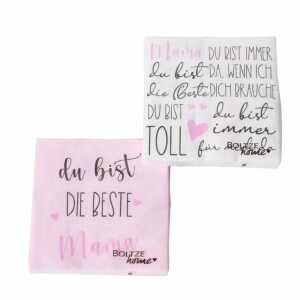 Mama DU BIST IMMER
du bist DA, WENN ICH
die Beste DICH BRAUCHE
DU BIST du bist
TOLL immer
für mich da
BOLTZE
home
du bist
DIE BESTE
Mama
BOLTZE
home